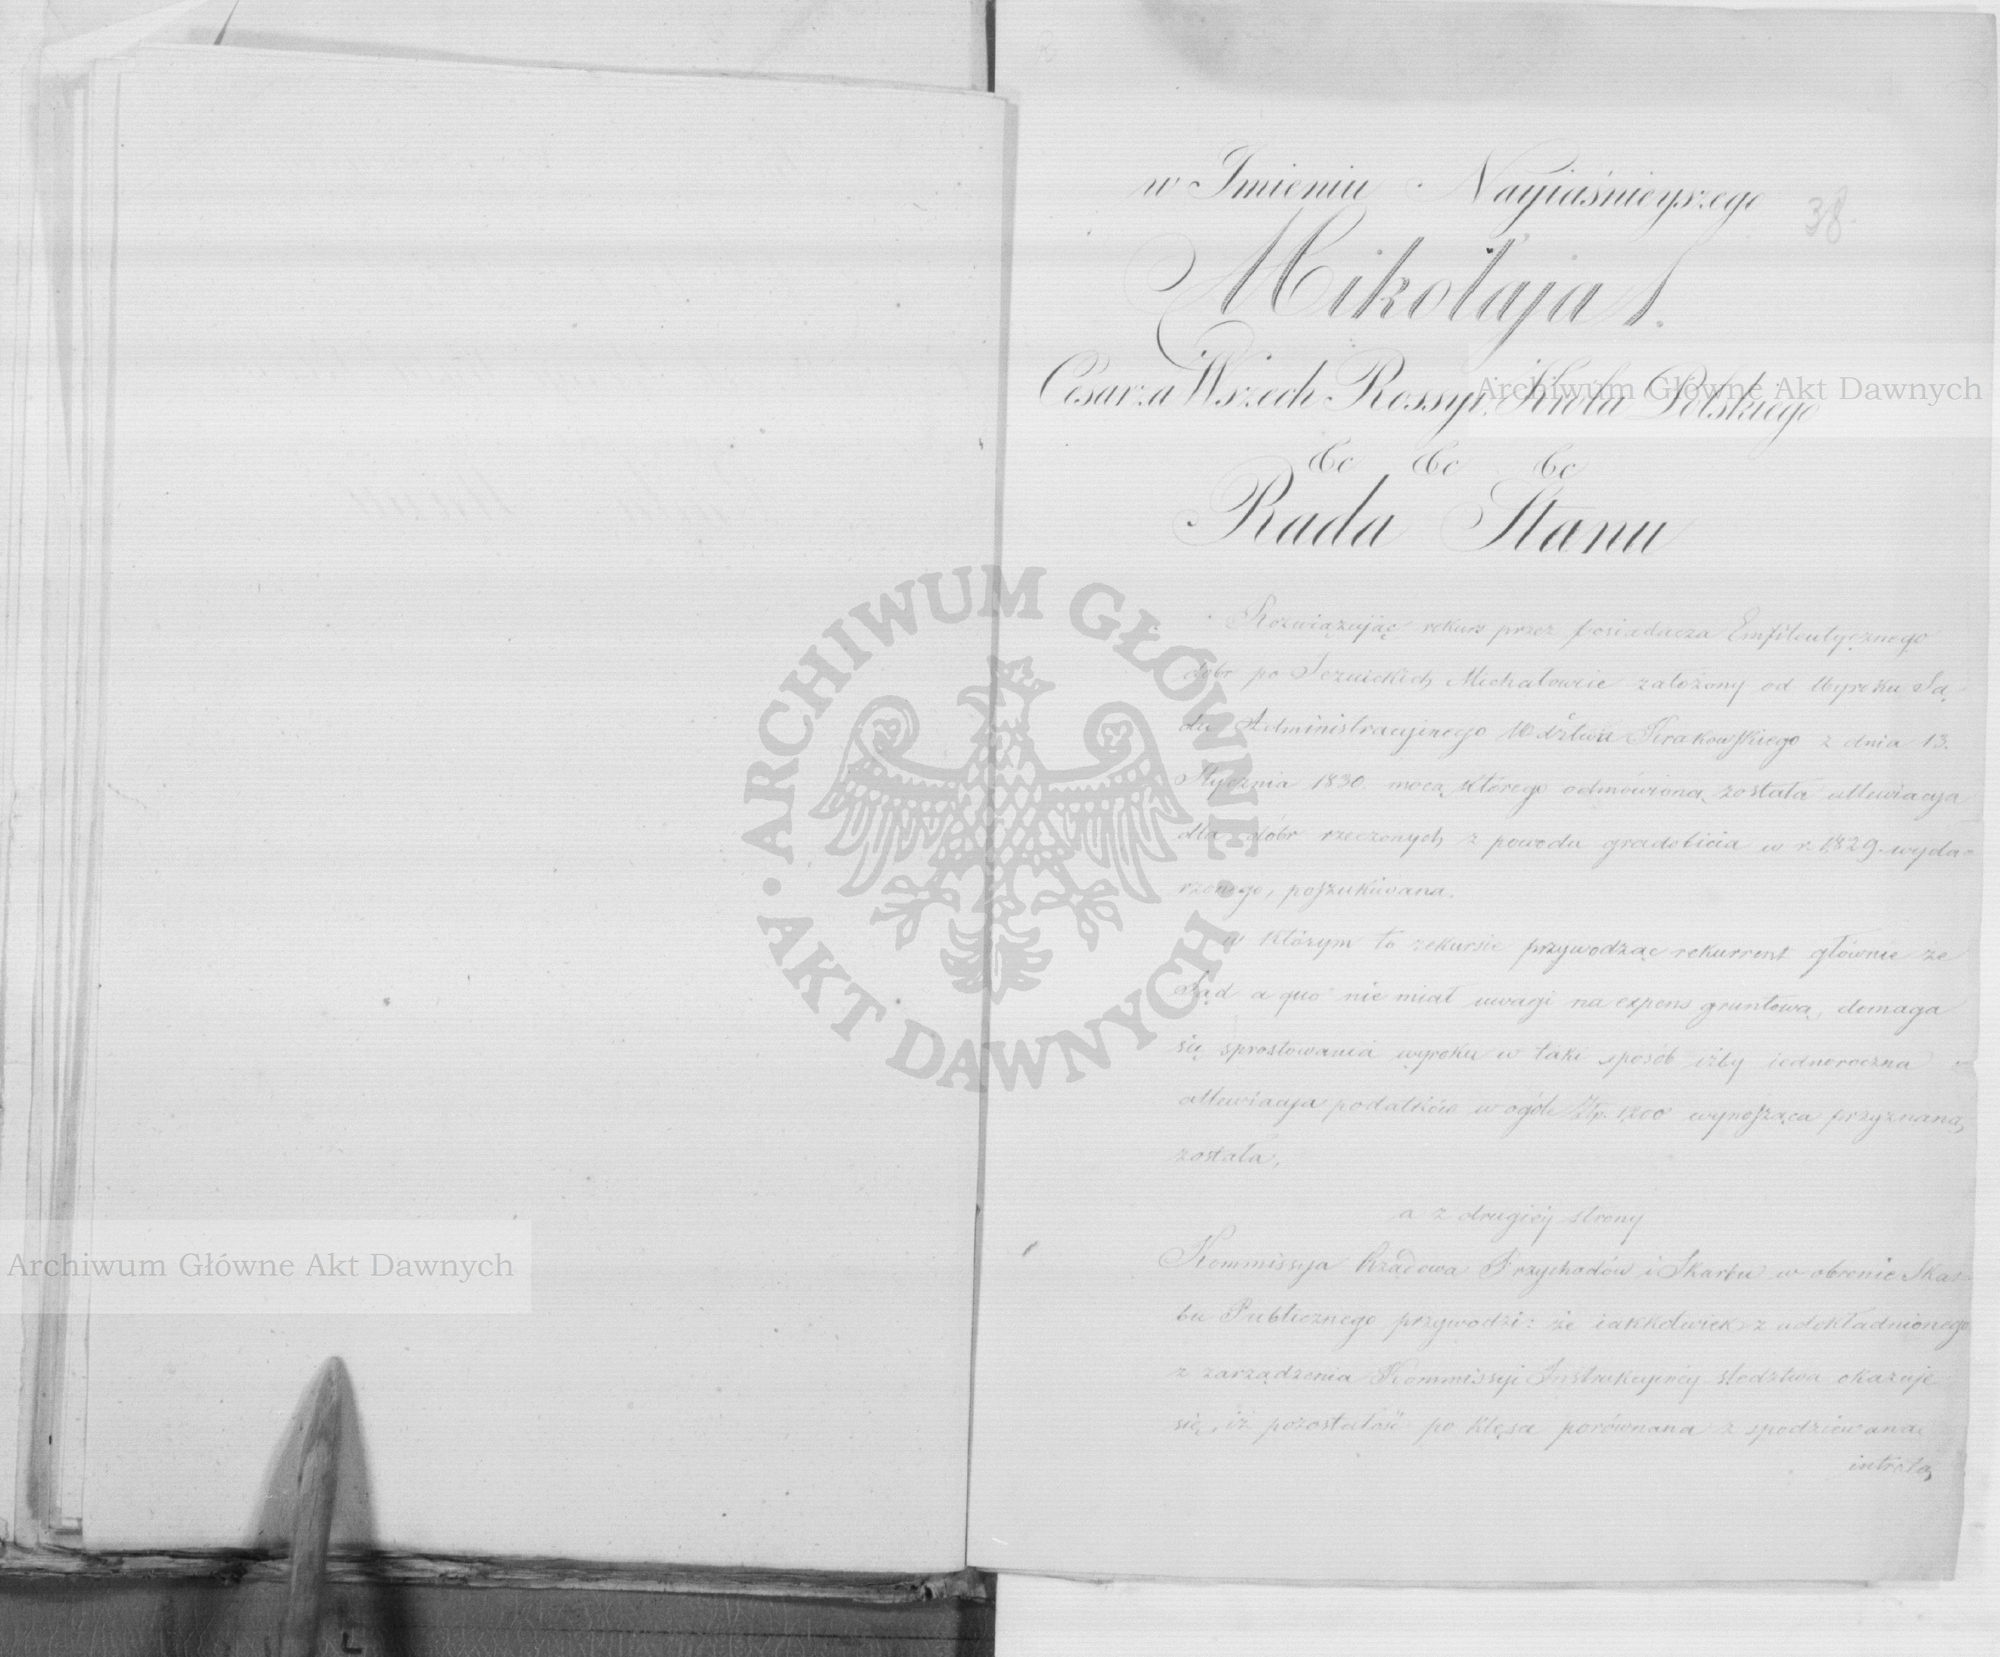 38
w Imieniu Nayiaśnieyszego
Mikołaja I.
Cesarza Wszech Rossyi, Króla Polskiego
&c &c &c
Rada Stanu
Rozwiązując rekurs przez posiadacza Emfiteutycznego
dóbr po Jezuickich Michałowice założony od Wyroku Są-
du Administracyjnego Wdztwa Krakowskiego z dnia 13.
Stycznia 1830. mocą którego odmówioną została allewiacya
dla dóbr rzeczonych z powodu gradobicia w r. 1829. wyda-
rzonego, poszukiwana.
w którym to rekursie przywodząc rekurrent głównie że
Sąd a quo nie miał uwagi na expens gruntową, domaga
się sprostowania wyroku w taki sposób iżby iednoroczna
allewiacya podatków w ogóle Złp. 1200 wynosząca przyznaną
została,
a z drugiéy strony
Kommissya Rządowa Przychodów i Skarbu w obronie Skar-
bu Publicznego przywodzi: że iakkolwiek z udokładnionego
z zarządzenia Kommissyi Instrukcyinéy śledztwa okazuje
się, iż pozostałość po klęsce porównana z spodziewaną
intratą,
Archiwum Główne Akt Dawnych
Archiwum Główne Akt Dawnych
ARCHIWUM GŁÓWNE · AKT DAWNYCH ·